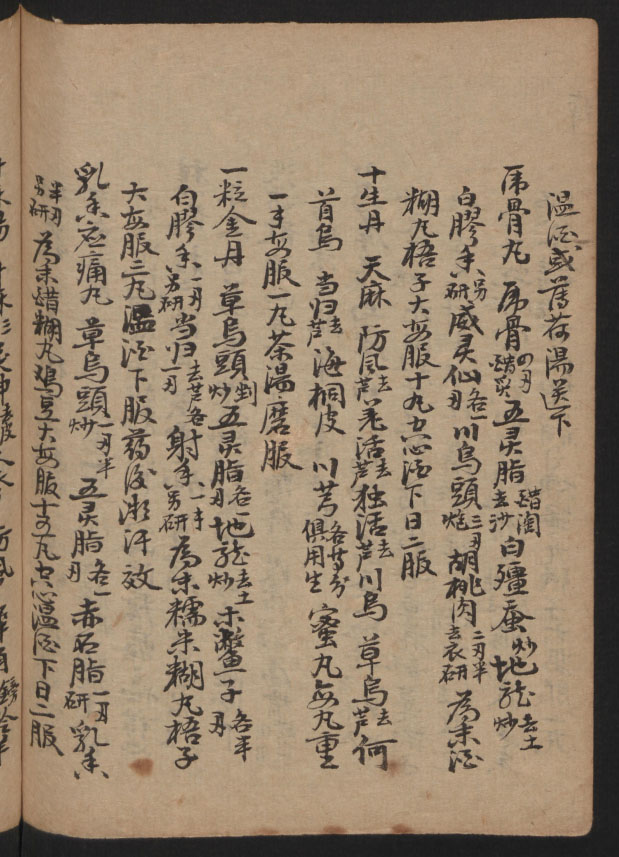 温酒或薄荷湯送下
虎骨丸 虎骨四刃醋炙五灵脂醋淘去沙白殭蚕炒地龙去土炒
白膠香另研威灵仙各一刃川烏頭二刃炮胡桃肉二刃半去衣研為末酒
糊丸梧子大每服十丸空心酒下日二服
十生丹 天麻 防風去芦羌活去芦独活去芦川烏 草烏去芦何
首烏 当归去芦海桐皮 川芎各等分俱用生蜜丸每丸重
一每服一丸茶湯磨服
一粒金丹 草烏頭剉炒五灵脂各一刃地龙去土炒木鱉子各半刃
白膠香一刃另研当归去芦各一刃射香一另研為末糯米糊丸梧子
大每服二丸温酒下服药後微汗效
乳香定痛丸 草烏頭一刃半炒五灵脂各一刃赤石脂一刃研乳香
半刃另研為末醋糊丸鸡豆大每服十五丸空心温酒下日二服